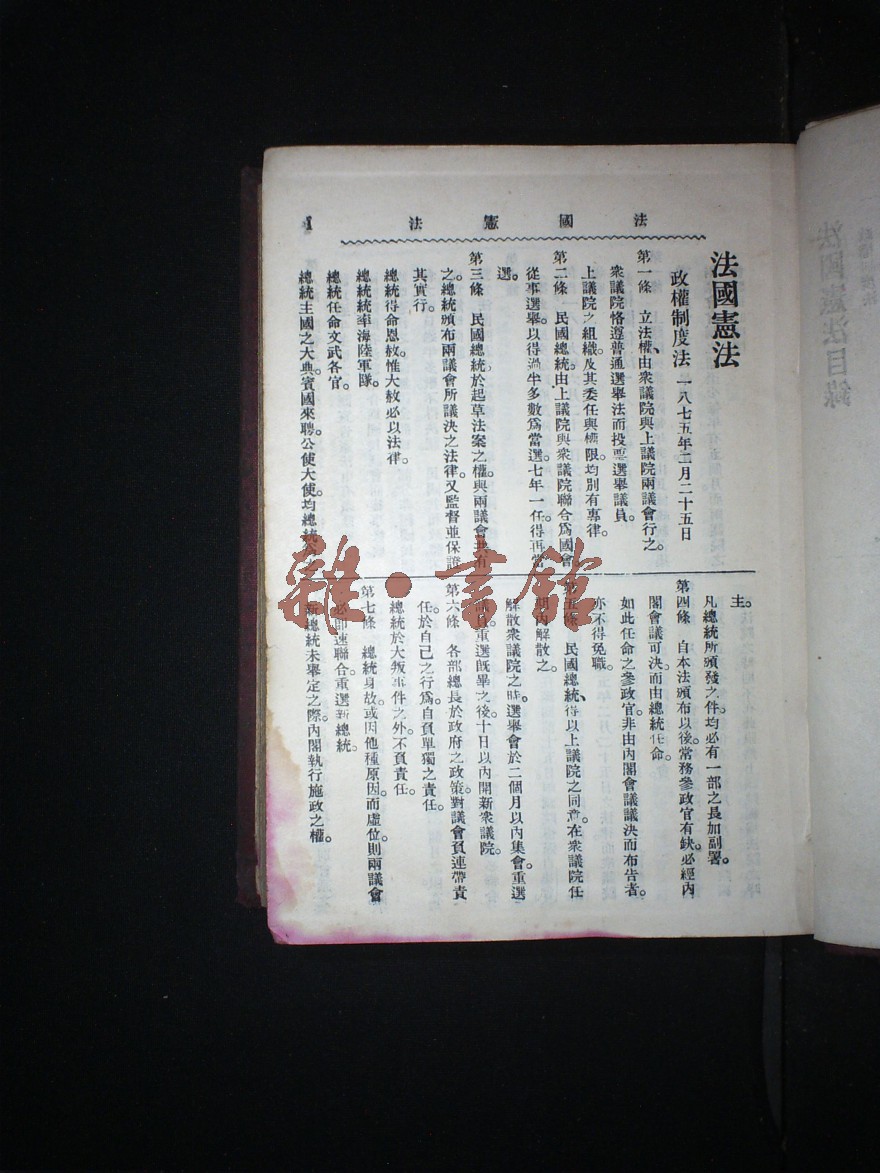 法國憲法
1
法國憲法
政權制度法 一八七五年二月二十五日
第一條 立法權、由衆議院與上議院兩議會行之。
衆議院恪遵普通選舉法而投票選舉議員。
上議院之組織。及其委任與權限。均別有專律。
第二條 民國總統由上議院與衆議院聯合爲國會
從事選舉。以得過半多數爲當選。七年一任。得再當
選。
第三條 民國總統於起草法案之權。與兩議會共有
之。總統頒布兩議會所議決之法律。又監督並保證
其實行。
總統得命恩赦。惟大赦必以法律。
總統統率海陸軍隊。
總統任命文武各官。
總統主國之大典。賓國來聘。公使大使。均總統
主。
凡總統所頒發之件。均必有一部之長加副署。
第四條 自本法頒布以後。常務參政官有缺。必經內
閣會議可決。而由總統任命。
如此任命之參政官。非由內閣會議議決而布告者。
亦不得免職。
第五條 民國總統、得以上議院之同意。在衆議院任
期內解散之。
解散衆議院之時。選舉會於二個月以內集會。重選
議員。重選旣畢之後。十日以內開新衆議院。
第六條 各部總長於政府之政策。對議會負連帶責
任。於自己之行爲。自負單獨之責任。
總統於大叛事件之外。不負責任。
第七條 總統身故。或因他種原因。而虛位。則兩議會
必即速聯合。重選新總統。
新總統未舉定之際。內閣執行施政之權。
雜·書館
法國憲法目錄